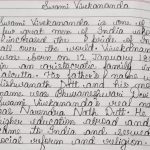 Swami Vivekananda
Swami Vivekananda is one of
few great men of India who
the pride of
all over the world. Vivekanan
was born on 12 January 18
in an aristocratic family in
Calcutta. His father's name
Vishwanath Dutt and his mo
name was Bhuvaneshwari Dev
Swami Vivekananda's real
was Narendra Nath Dutt. He
higher education abroad and
came to India and served
social reform and religion